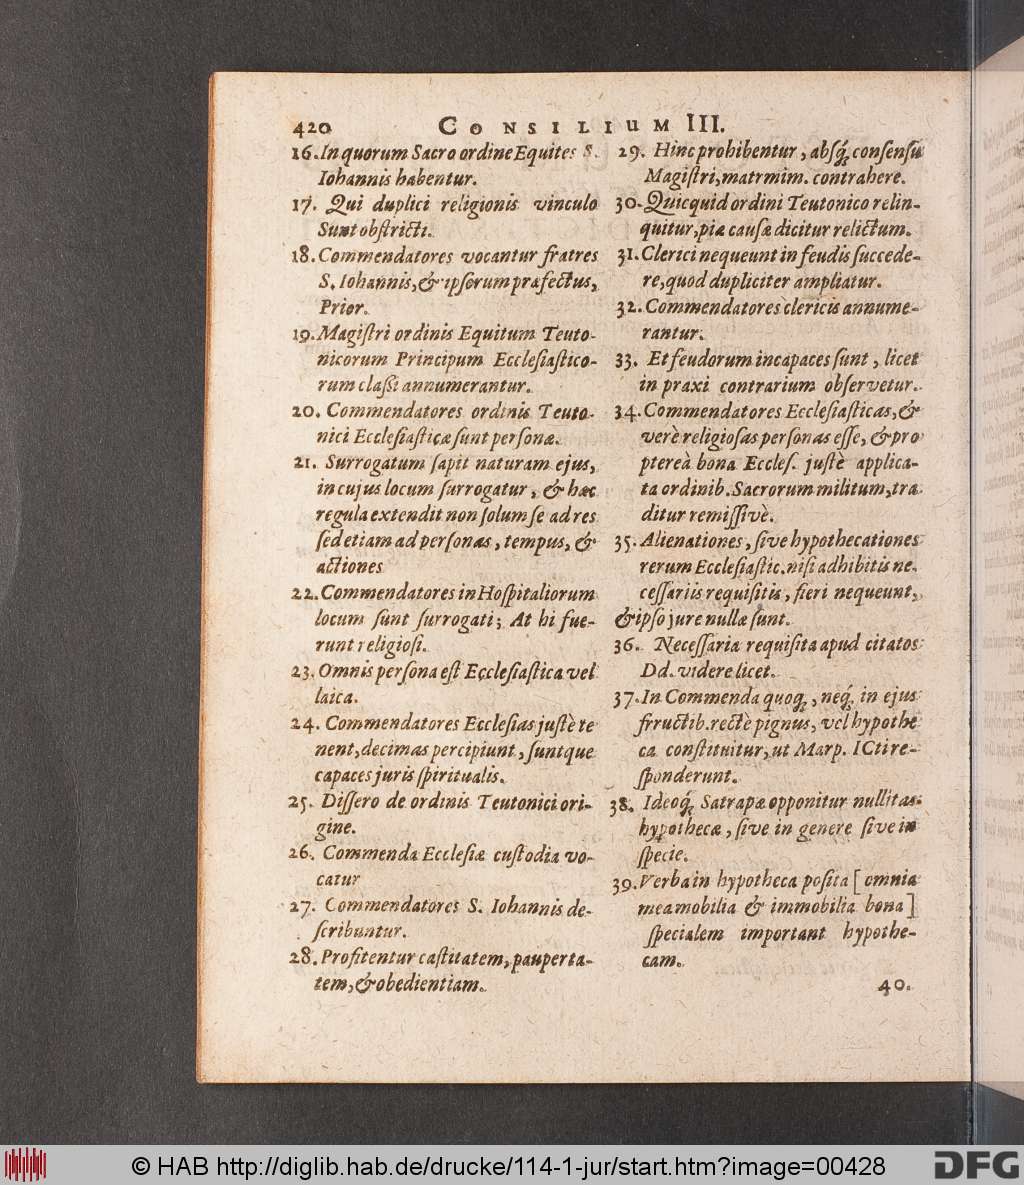 420 CONSILIUM III.
16. In quorum Sacro ordine Equites S.
Iohannis habentur.
17. Qui duplici religionis vinculo
Sunt obstricti.
18. Commendatores vocantur fratres
S. Iohannis, & ipsorum præfectus,
Prior.
19. Magistri ordinis Equitum Teuto-
nicorum Principum Ecclesiastico-
rum classi annumerantur.
20. Commendatores ordinis Teuto-
nici Ecclesiasticæ sunt personæ.
21. Surrogatum sapit naturam ejus,
in cujus locum surrogatur, & hæc
regula extendit non solum se ad res
sed etiam ad personas, tempus, &
actiones
22. Commendatores in Hospitaliorum
locum sunt surrogati; At hi fue-
runt religiosi.
23. Omnis persona est Ecclesiastica vel
laica.
24. Commendatores Ecclesias justè te
nent, decimas percipiunt, suntque
capaces juris spiritualis.
25. Dissero de ordinis Teutonici ori-
gine.
26. Commenda Ecclesiæ custodia vo-
catur
27. Commendatores S. Iohannis de-
scribuntur.
28. Profitentur castitatem, pauperta-
tem, & obedientiam.
29. Hinc prohibentur, absq́; consensu
Magistri, matrmim. contrahere.
30. Quicquid ordini Teutonico relin-
quitur, piæ causæ dicitur relictum.
31. Clerici nequeunt in feudis succede-
re, quod dupliciter ampliatur.
32. Commendatores clericis annume-
rantur.
33. Et feudorum incapaces sunt, licet
in praxi contrarium observetur.
34. Commendatores Ecclesiasticas, &
verè religiosas personas esse, & pro
ptereà bona Eccles. justè applica-
ta ordinib. Sacrorum militum, tra
ditur remissivè.
35. Alienationes, sive hypothecationes
rerum Ecclesiastic. nisi adhibitis ne-
cessariis requisitis, fieri nequeunt,
& ipso jure nullæ sunt.
36. Necessaria requisita apud citatos
Dd. videre licet.
37. In Commenda quoq;, neq́; in ejus
fructib. rectè pignus, vel hypothe
ca constituitur, ut Marp. ICti re-
sponderunt.
38. Ideoq́; Satrapæ opponitur nullitas
hypothecæ, sive in genere sive in
specie.
39. Verba in hypotheca posita [omnia
mea mobilia & immobilia bona]
specialem important hypothe-
cam.
40.
© HAB http://diglib.hab.de/drucke/114-1-jur/start.htm?image=00428
DFG